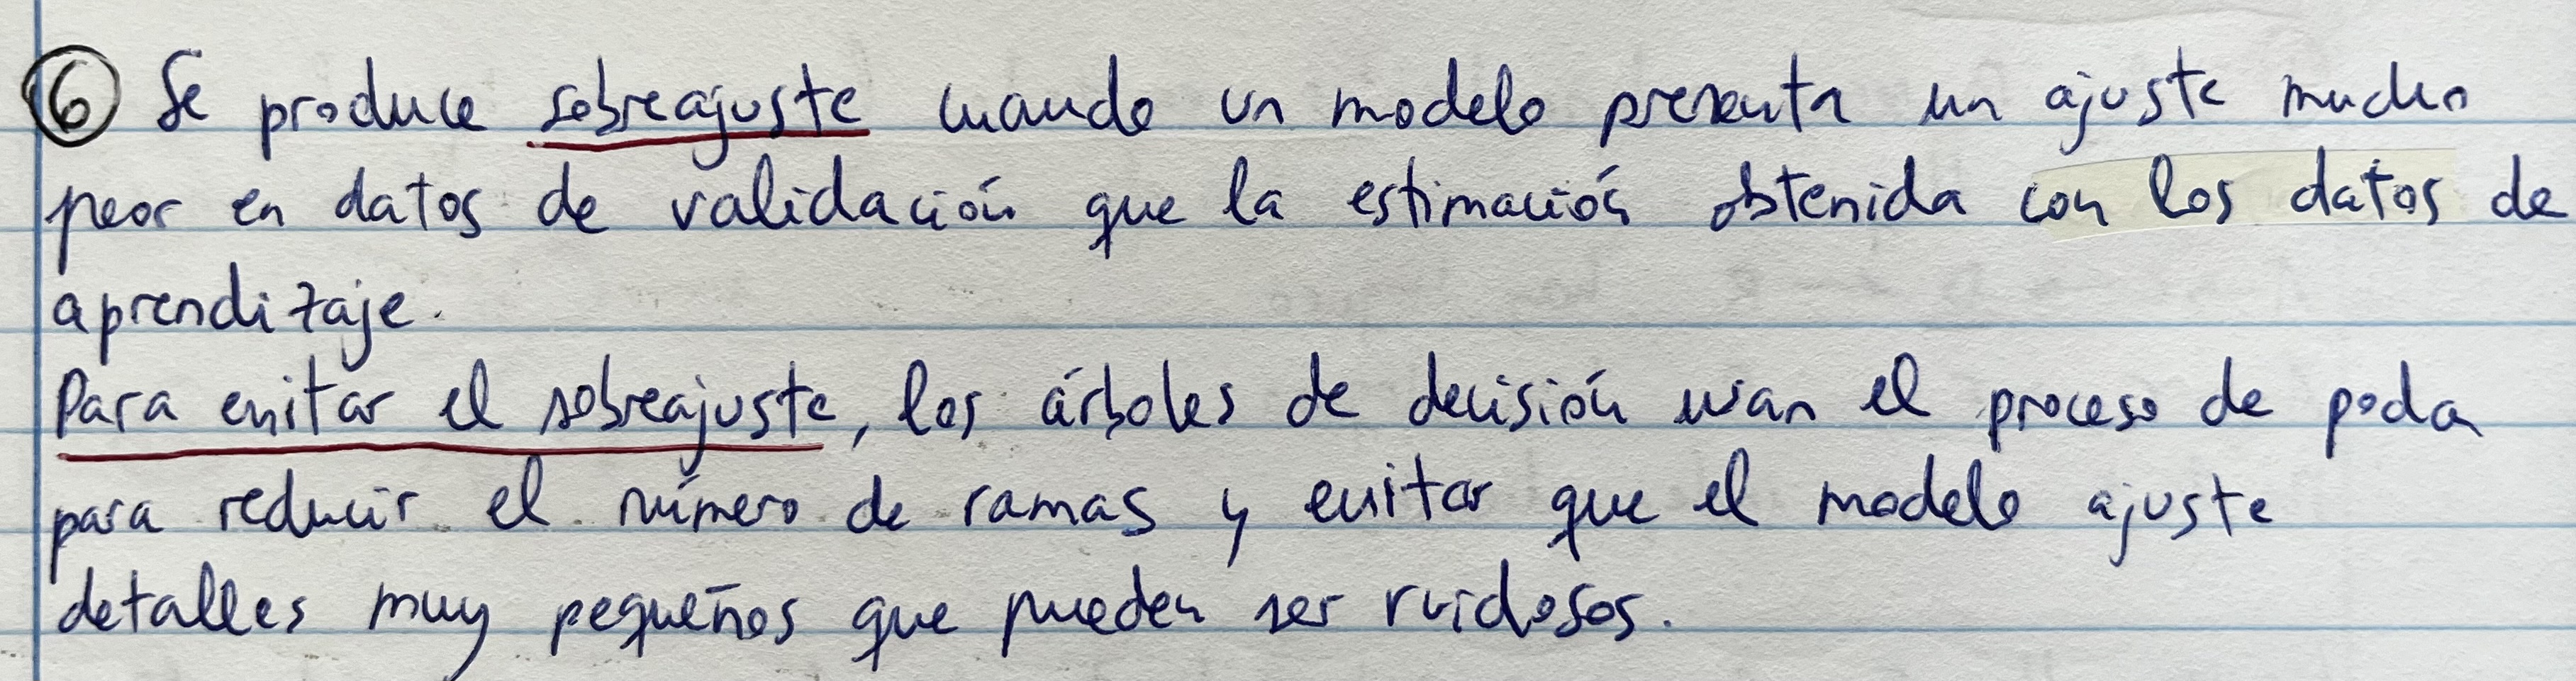 ⑥ Se produce sobreajuste cuando un modelo presenta un ajuste mucho
peor en datos de validación que la estimación obtenida con los datos de
aprendizaje.
Para evitar el sobreajuste, los árboles de decisión usan el proceso de poda
para reducir el número de ramas y evitar que el modelo ajuste
detalles muy pequeños que pueden ser ruidosos.